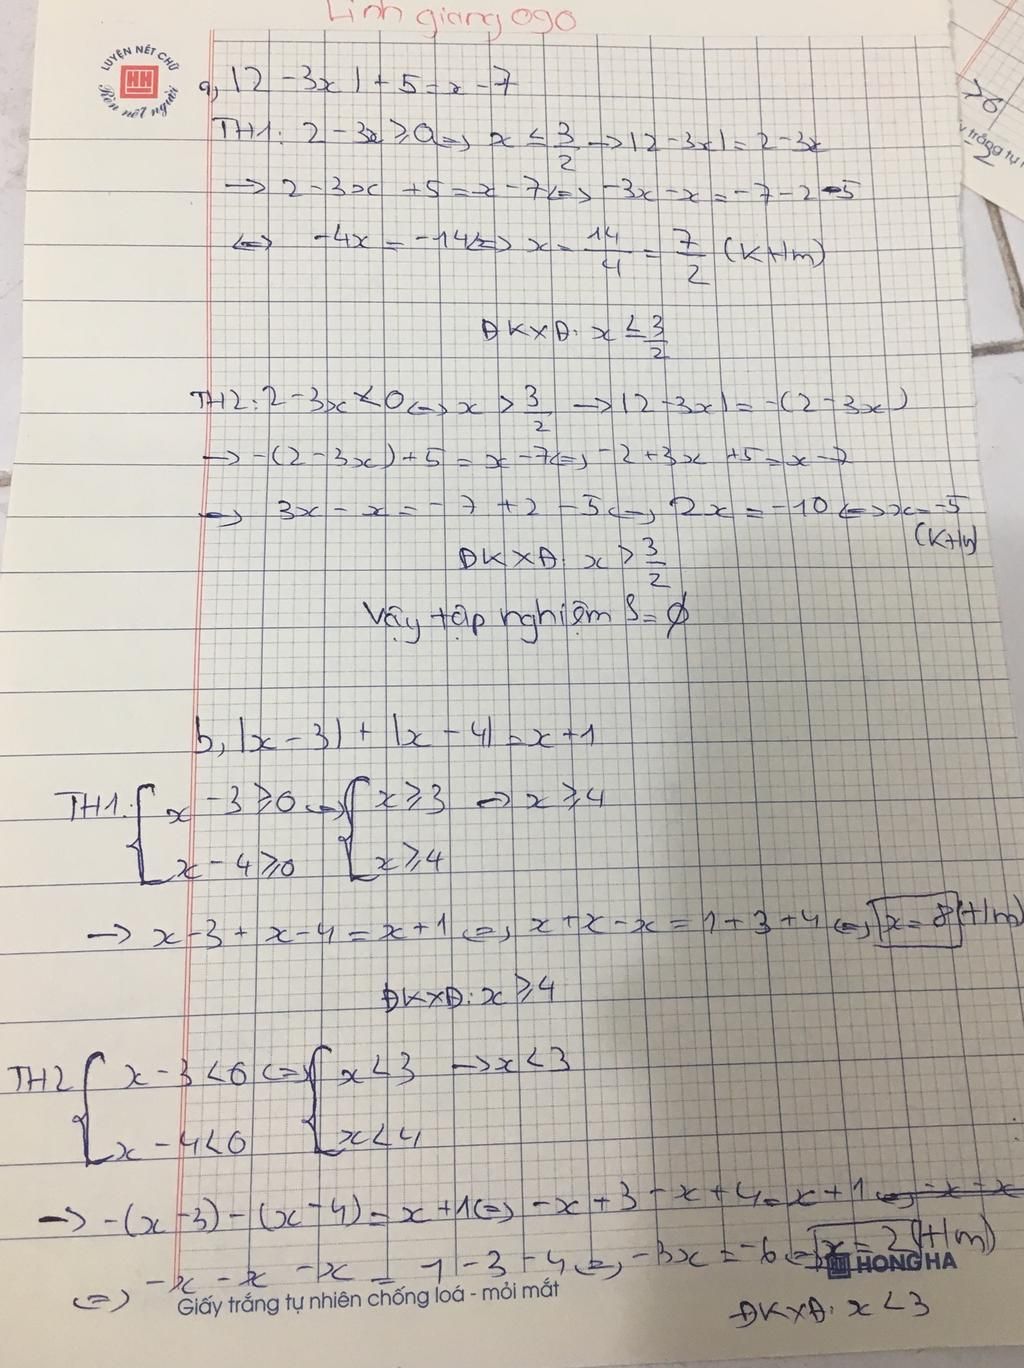 Linh giang 090
LUYỆN NÉT CHỮ
HH
Rèn nết người
a, |2 - 3x| + 5 = x - 7
TH1: 2 - 3x ≥ 0 ⇔ x ≤ 3/2 → |2 - 3x| = 2 - 3x
→ 2 - 3x + 5 = x - 7 ⇔ -3x - x = -7 - 2 - 5
⇔ -4x = -14 ⇔ x = 14/4 = 7/2 (K t/m)
ĐKXĐ: x ≤ 3/2
TH2: 2 - 3x < 0 ⇔ x > 3/2 → |2 - 3x| = -(2 - 3x)
→ -(2 - 3x) + 5 = x - 7 ⇔ -2 + 3x + 5 = x - 7
⇔ 3x - x = -7 + 2 - 5 ⇔ 2x = -10 ⇔ x = -5
(K t/m)
ĐKXĐ: x > 3/2
Vậy tập nghiệm S = ∅
b, |x - 3| + |x - 4| = x + 1
TH1: { x - 3 ≥ 0 ⇔ { x ≥ 3 → x ≥ 4
x - 4 ≥ 0 x ≥ 4
→ x - 3 + x - 4 = x + 1 ⇔ x + x - x = 1 + 3 + 4 ⇔ x = 8 (t/m)
ĐKXĐ: x ≥ 4
TH2 { x - 3 < 0 ⇔ { x < 3 → x < 3
x - 4 < 0 x < 4
→ -(x - 3) - (x - 4) = x + 1 ⇔ -x + 3 - x + 4 = x + 1 ⇔ -x - x
⇔ -x - x - x = 1 - 3 - 4 ⇔ -3x = -6 ⇔ x = 2 (t/m)
HONG HA
Giấy trắng tự nhiên chống loá - mỏi mắt
ĐKXĐ: x < 3